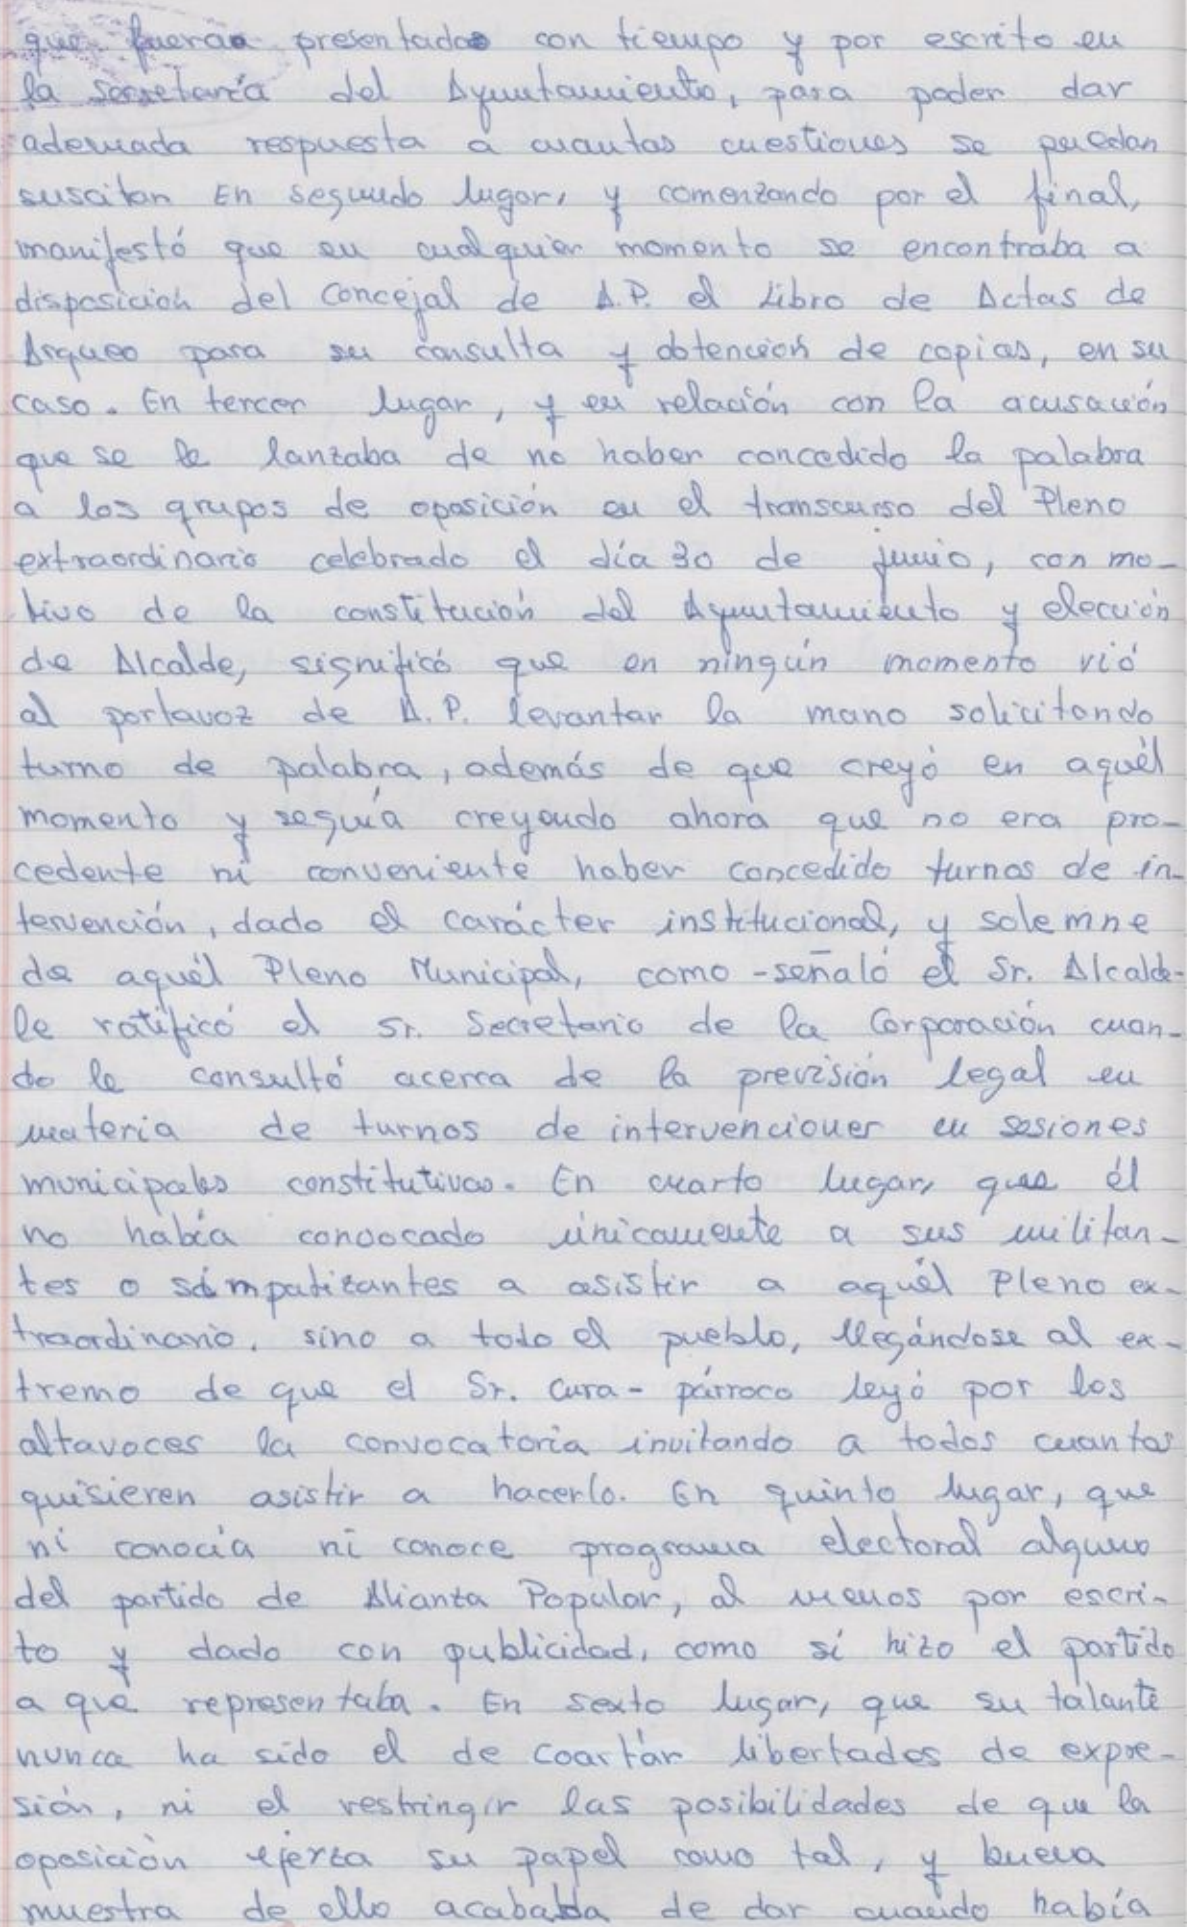 que fueran presentadas con tiempo y por escrito en
la Secretaría del Ayuntamiento, para poder dar
adecuada respuesta a cuantas cuestiones se puedan
suscitar En segundo lugar, y comenzando por el final,
manifestó que en cualquier momento se encontraba a
disposición del concejal de A.P. el Libro de Actas de
Arqueo para su consulta y obtención de copias, en su
caso. En tercer lugar, y en relación con la acusación
que se le lanzaba de no haber concedido la palabra
a los grupos de oposición en el transcurso del Pleno
extraordinario celebrado el día 30 de junio, con mo-
tivo de la constitución del Ayuntamiento y elección
de Alcalde, significó que en ningún momento vió
al portavoz de A.P. levantar la mano solicitando
turno de palabra, además de que creyó en aquél
momento y seguía creyendo ahora que no era pro-
cedente ni conveniente haber concedido turnos de in-
tervención, dado el carácter institucional, y solemne
de aquél Pleno Municipal, como -señaló el Sr. Alcalde-
le ratificó el Sr. Secretario de la Corporación cuan-
do le consultó acerca de la previsión legal en
materia de turnos de intervenciones en sesiones
municipales constitutivas. En cuarto lugar, que él
no había convocado únicamente a sus militan-
tes o simpatizantes a asistir a aquél Pleno ex-
traordinario, sino a todo el pueblo, llegándose al ex-
tremo de que el Sr. Cura-párroco leyó por los
altavoces la convocatoria invitando a todos cuantos
quisieren asistir a hacerlo. En quinto lugar, que
ni conocía ni conoce programa electoral alguno
del partido de Alianza Popular, al menos por escri-
to y dado con publicidad, como sí hizo el partido
a que representaba. En sexto lugar, que su talante
nunca ha sido el de coartar libertades de expre-
sión, ni el restringir las posibilidades de que la
oposición ejerza su papel como tal, y buena
muestra de ello acababa de dar cuando había